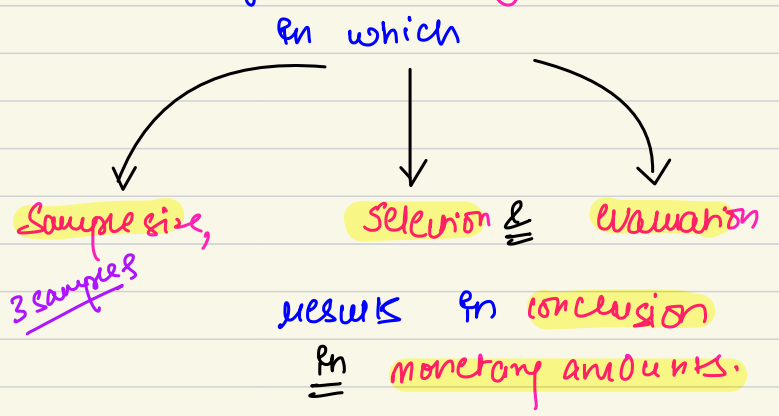 in which
Sample size, selection & evaluation
3 samples
results in conclusion
in monetary amounts.